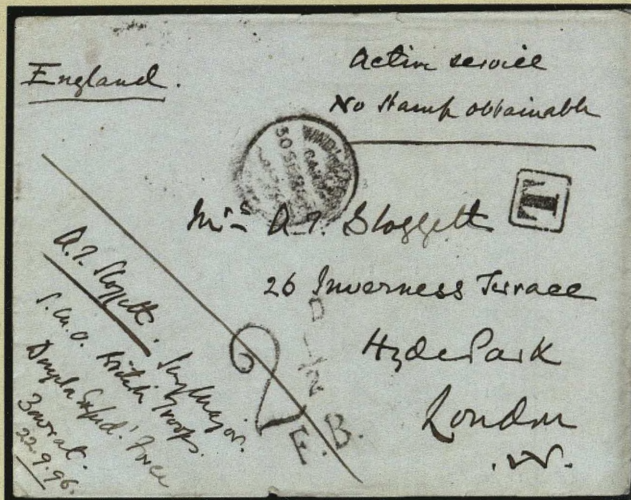 England.
Active service
No stamp obtainable
T
Mrs A. T. Sloggett
26 Inverness Terrace
Hyde Park
London
W.
A. T. Sloggett. Surg Major.
S.M.O. British Troops.
Dongola Exped. Force
22.9.96.
2
E. B.